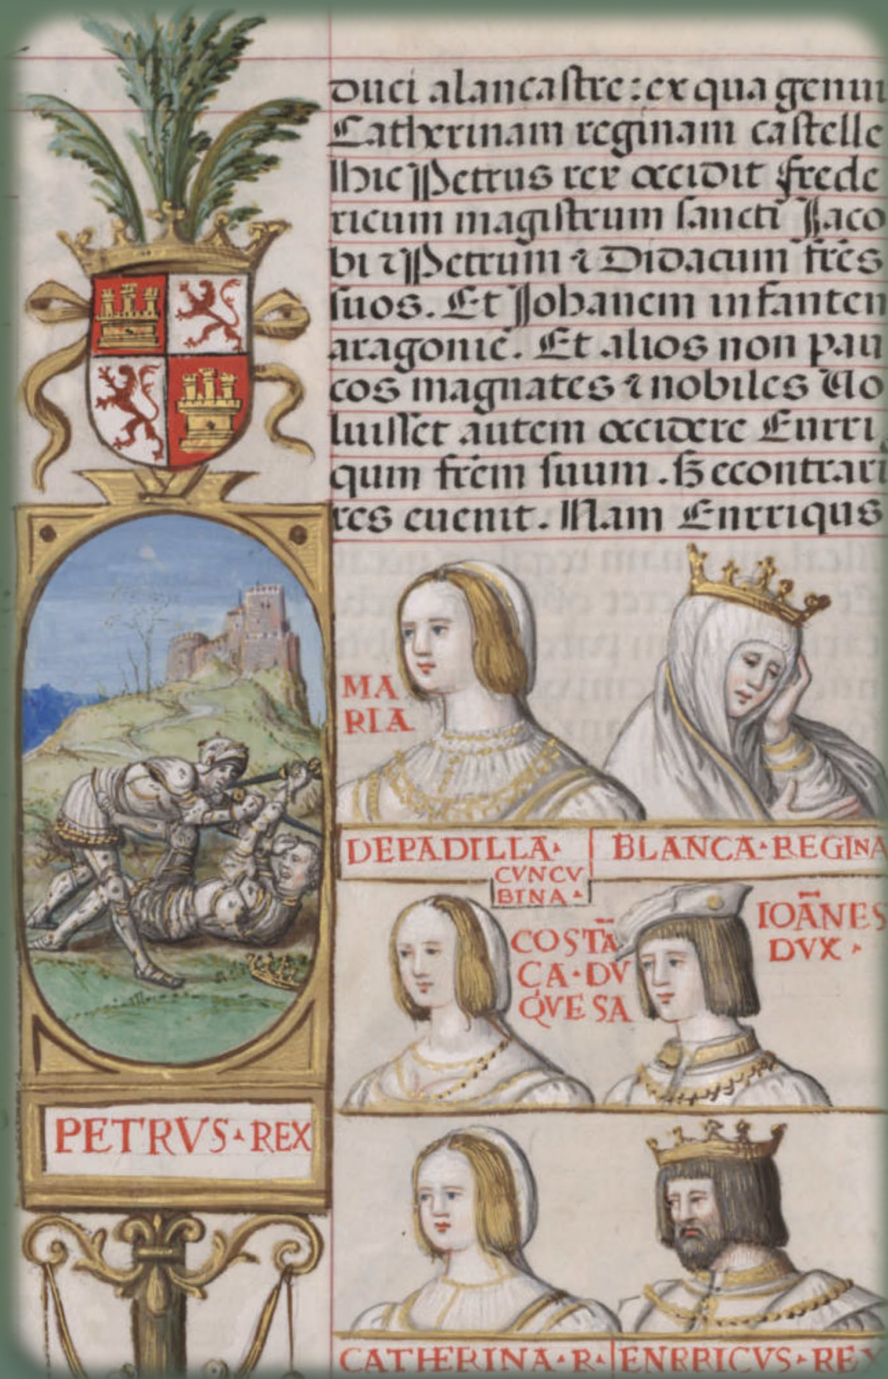 duci alancastre: ex qua genui
Catherinam reginam castelle
hic Petrus rex occidit frede
ricum magistrum sancti Jaco
bi ⁊ Petrum ⁊ Didacum fr̄es
suos. Et Johanem infanten
aragonie. Et alios non pau
cos magnates ⁊ nobiles Uo
luisset autem occidere Enrri
qum fr̄em suum. S econtrari
res euenit. Nam Enrriqus
MA
RIA
DEPADILLA· BLANCA·REGINA
CVNCV
BINA·
COSTĀ
CA·DV
QVESA
IOĀNES
DVX·
PETRVS·REX
CATHERINA·R· ENRRICVS·REX